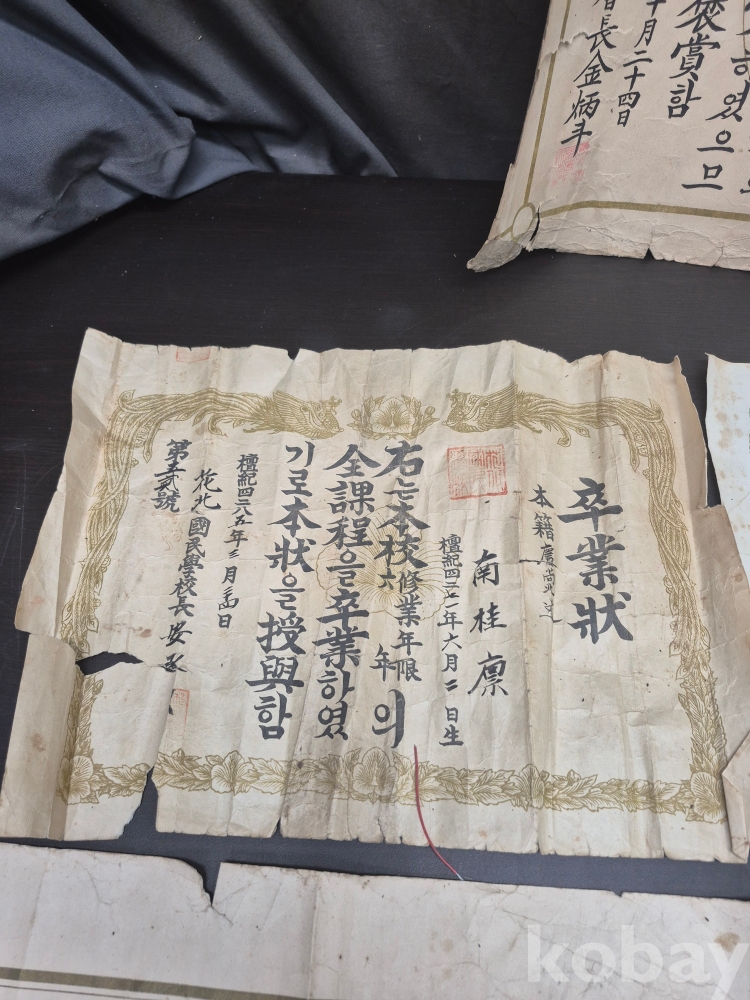 卒業狀
本籍慶尙北道
南桂
檀紀四二七一年六月二日生
右는本校修業年限六年의
全課程을卒業하였
기로本狀을授與함
檀紀四二八五年三月 日
花北國民學校長
第 號
하였으므
褒賞함
十月二十四日
長金炳斗
kobay